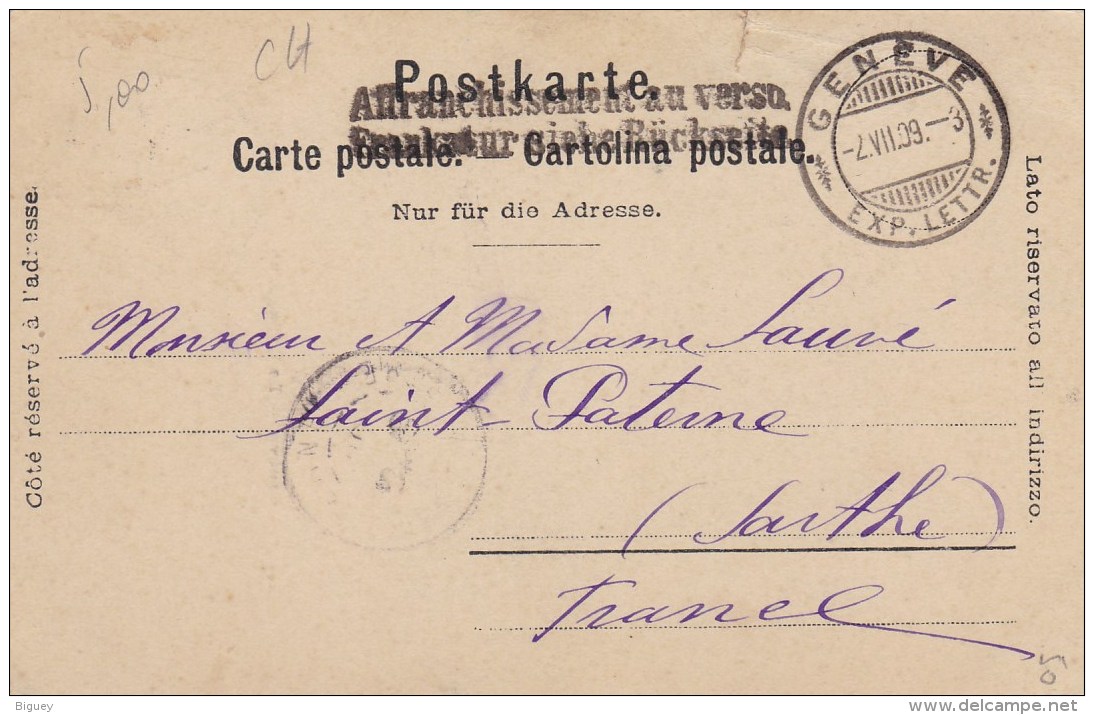 5,00
CH
Postkarte.
Affranchissement au verso.
Frankatur siehe Rückseite.
Carte postale. - Cartolina postale.
Nur für die Adresse.
GENÈVE
-7.VII.09.-3
EXP. LETTR.
Côté réservé à l'adresse.
Lato riservato all indirizzo.
Monsieur & Madame Sauvé
Saint-Paterne
(Sarthe)
France
50
Biguey
www.delcampe.net